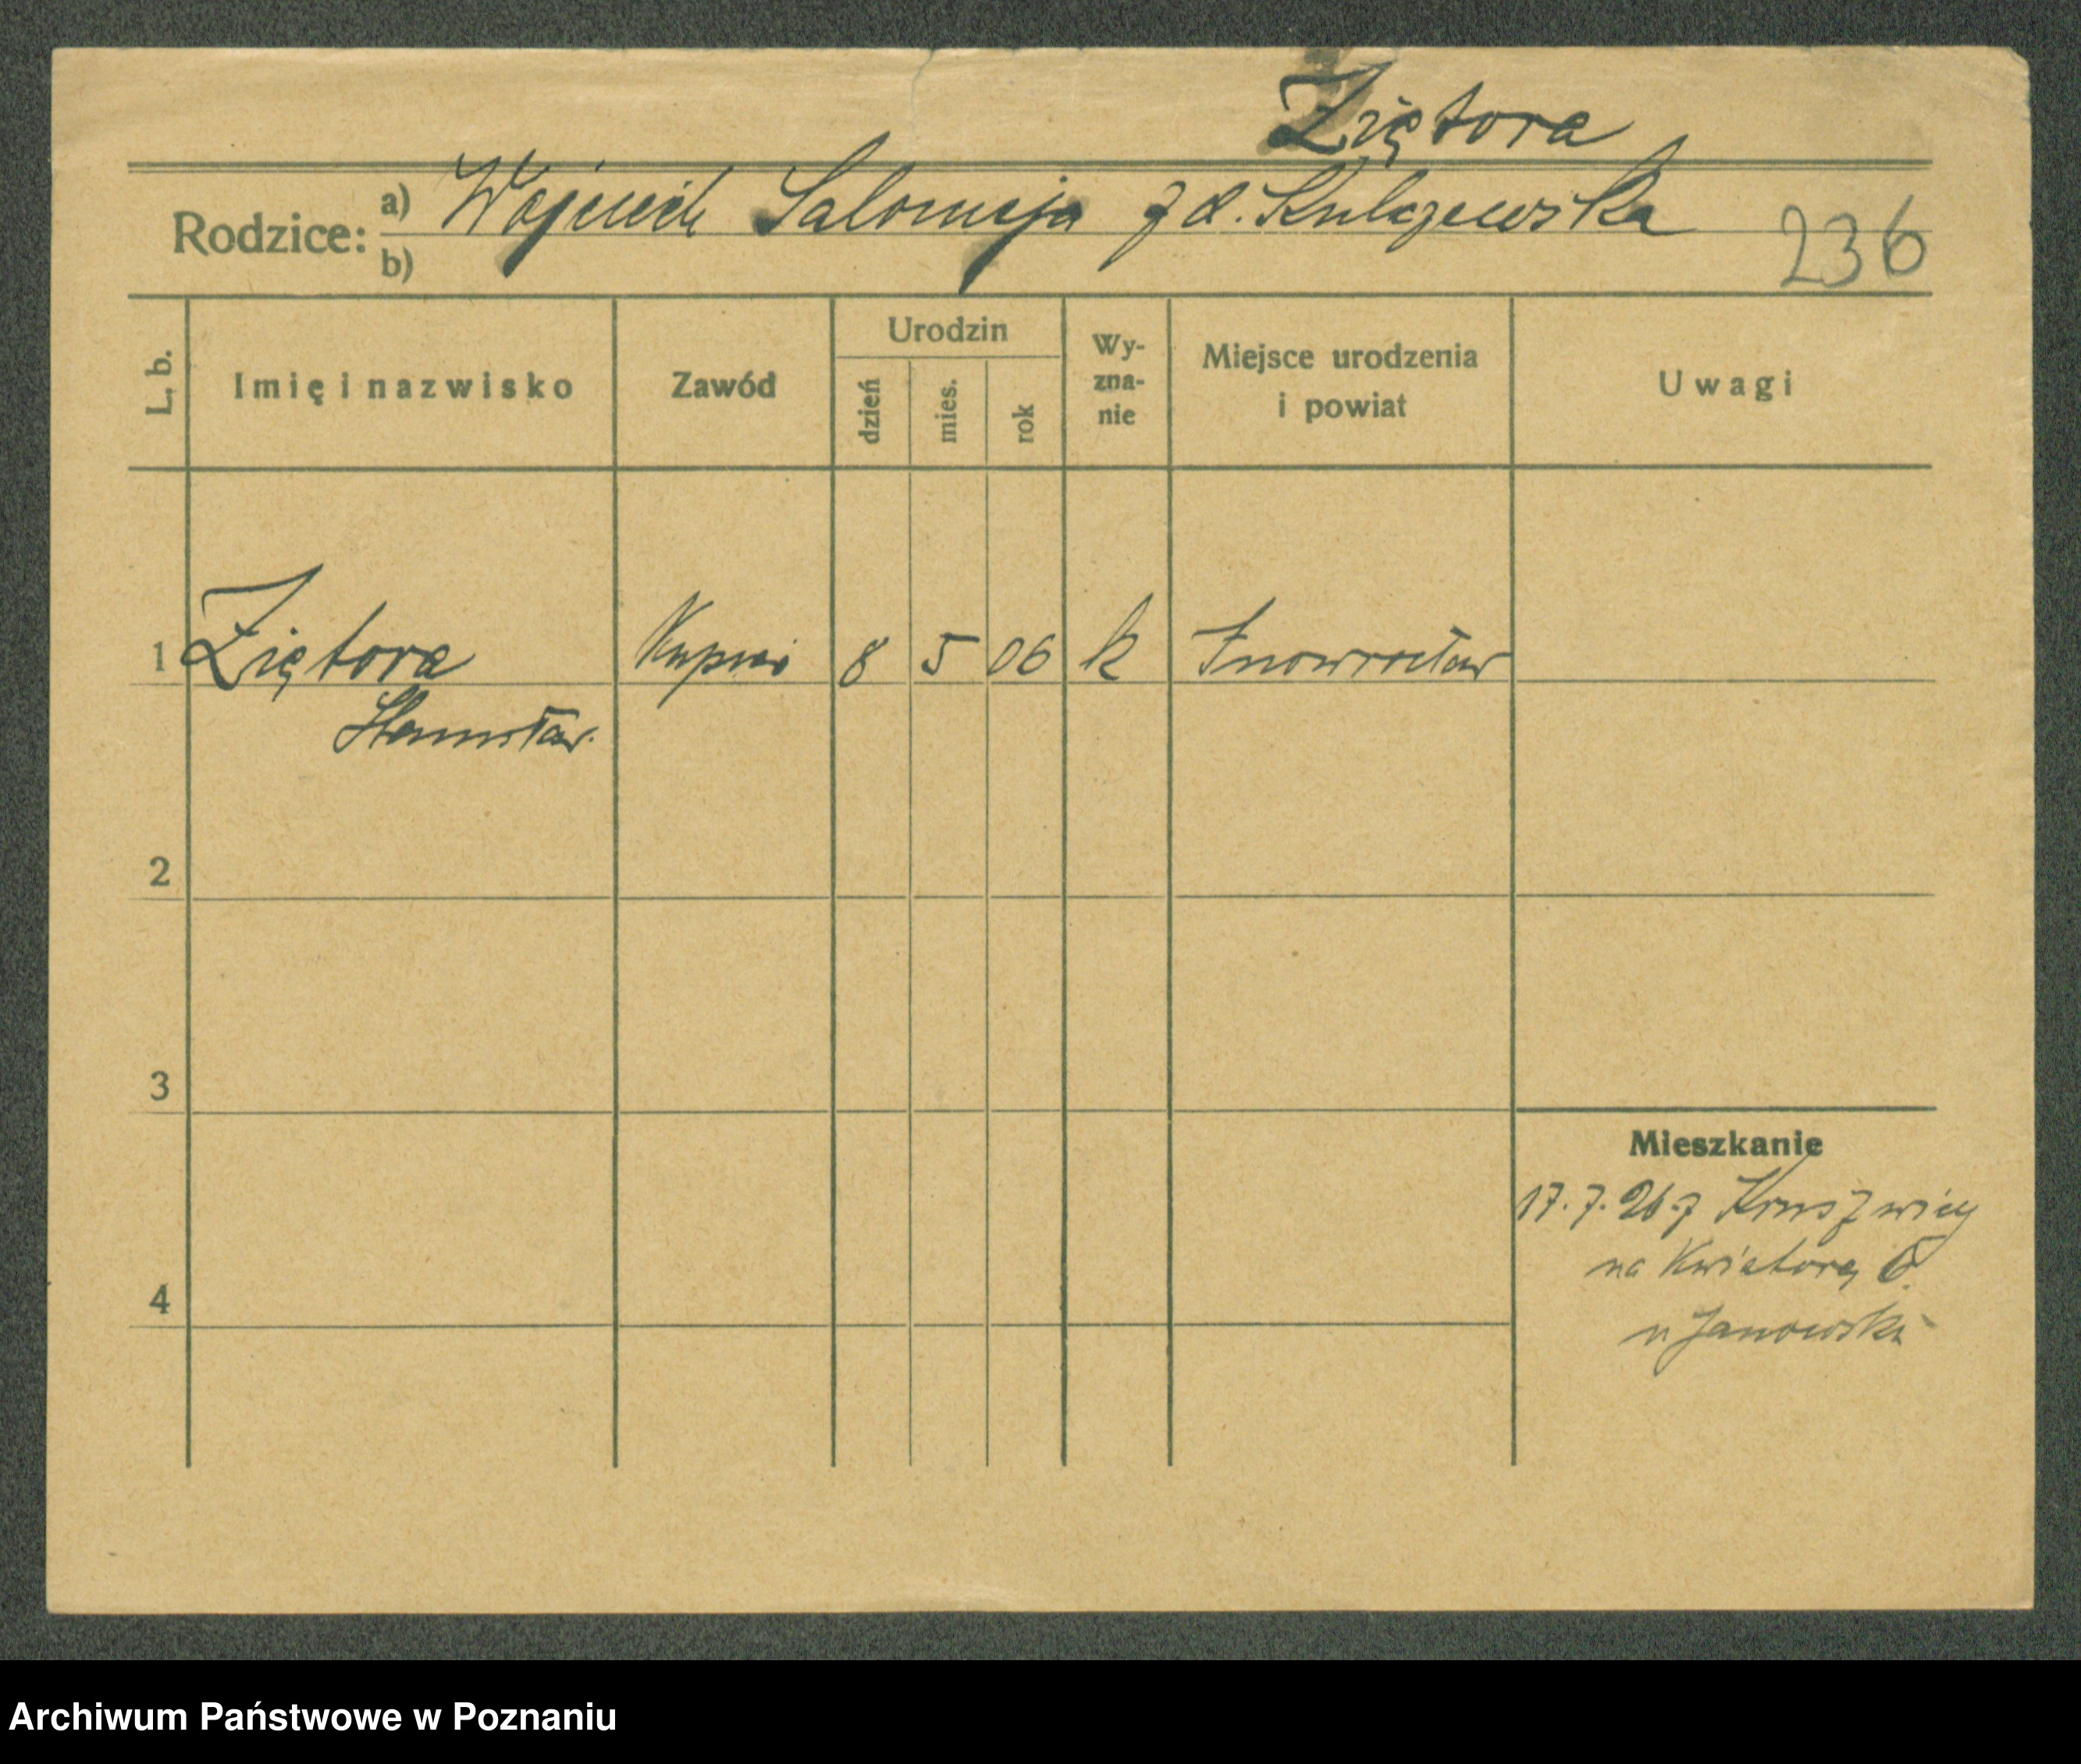 Ziętora
Rodzice: a) Wojciech Salomeja z d. Kulczewska
b)
236
L. b.
Imię i nazwisko
Zawód
Urodzin
dzień
mies.
rok
Wy-
zna-
nie
Miejsce urodzenia
i powiat
Uwagi
1 Ziętora Kupiec 8 5 06 k Inowrocław
Stanisław.
2
3
4
Mieszkanie
17.7.26 z Kruszwicy
na Kwiatową 6.
u Janowski
Archiwum Państwowe w Poznaniu